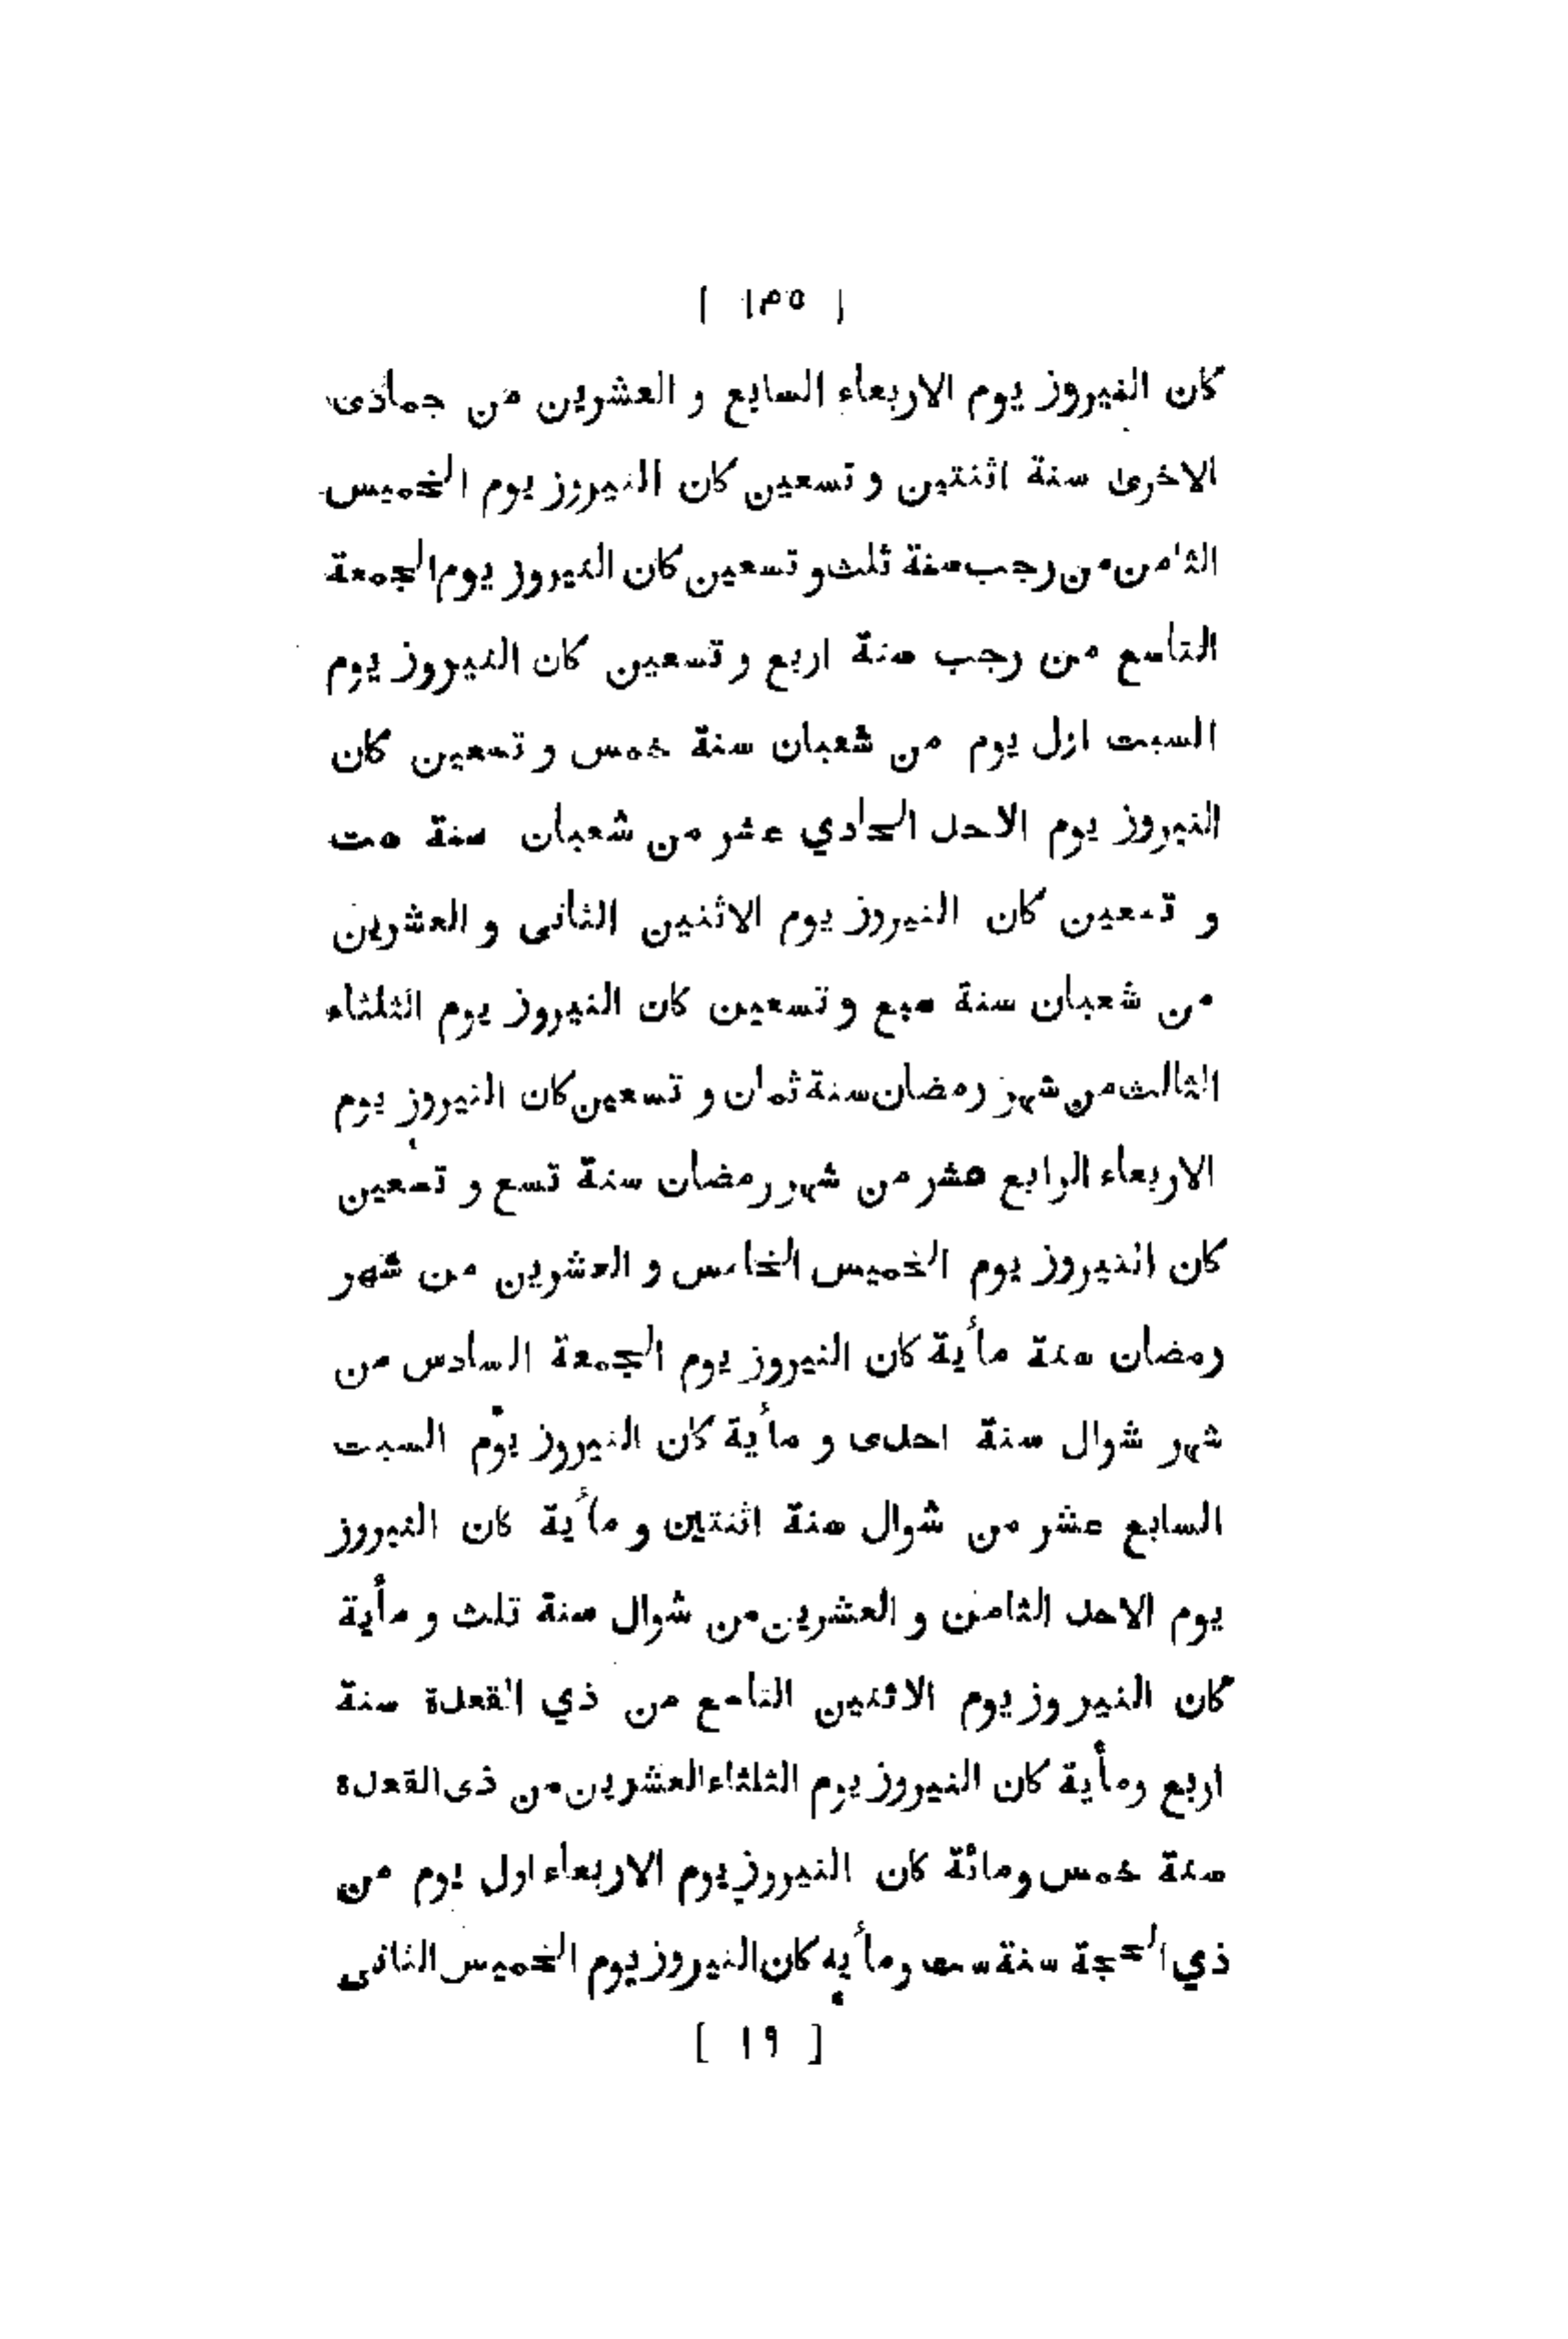 [ ١٣٥ ]
كان النيروز يوم الاربعاء السابع و العشرين من جمادى
الاخرى سنة اثنتين و تسعين كان النيروز يوم الخميس
الثامن من رجب سنة ثلث و تسعين كان النيروز يوم الجمعة
التاسع من رجب سنة اربع و تسعين كان النيروز يوم
السبت اول يوم من شعبان سنة خمس و تسعين كان
النيروز يوم الاحد الحادي عشر من شعبان سنة ست
و تسعين كان النيروز يوم الاثنين الثانى و العشرين
من شعبان سنة سبع و تسعين كان النيروز يوم الثلثاء
الثالث من شهر رمضان سنة ثمان و تسعين كان النيروز يوم
الاربعاء الرابع عشر من شهر رمضان سنة تسع و تسعين
كان النيروز يوم الخميس الخامس و العشرين من شهر
رمضان سنة مأية كان النيروز يوم الجمعة السادس من
شهر شوال سنة احدى و مأية كان النيروز يوم السبت
السابع عشر من شوال سنة اثنتين و مأية كان النيروز
يوم الاحد الثامن و العشرين من شوال سنة ثلث و مأية
كان النيروز يوم الاثنين التاسع من ذي القعدة سنة
اربع ومأية كان النيروز يوم الثلثاء العشرين من ذى القعدة
سنة خمس ومائة كان النيروز يوم الاربعاء اول يوم من
ذي الحجة سنة ست ومأيه كان النيروز يوم الخميس الثانى
[ ١٩ ]